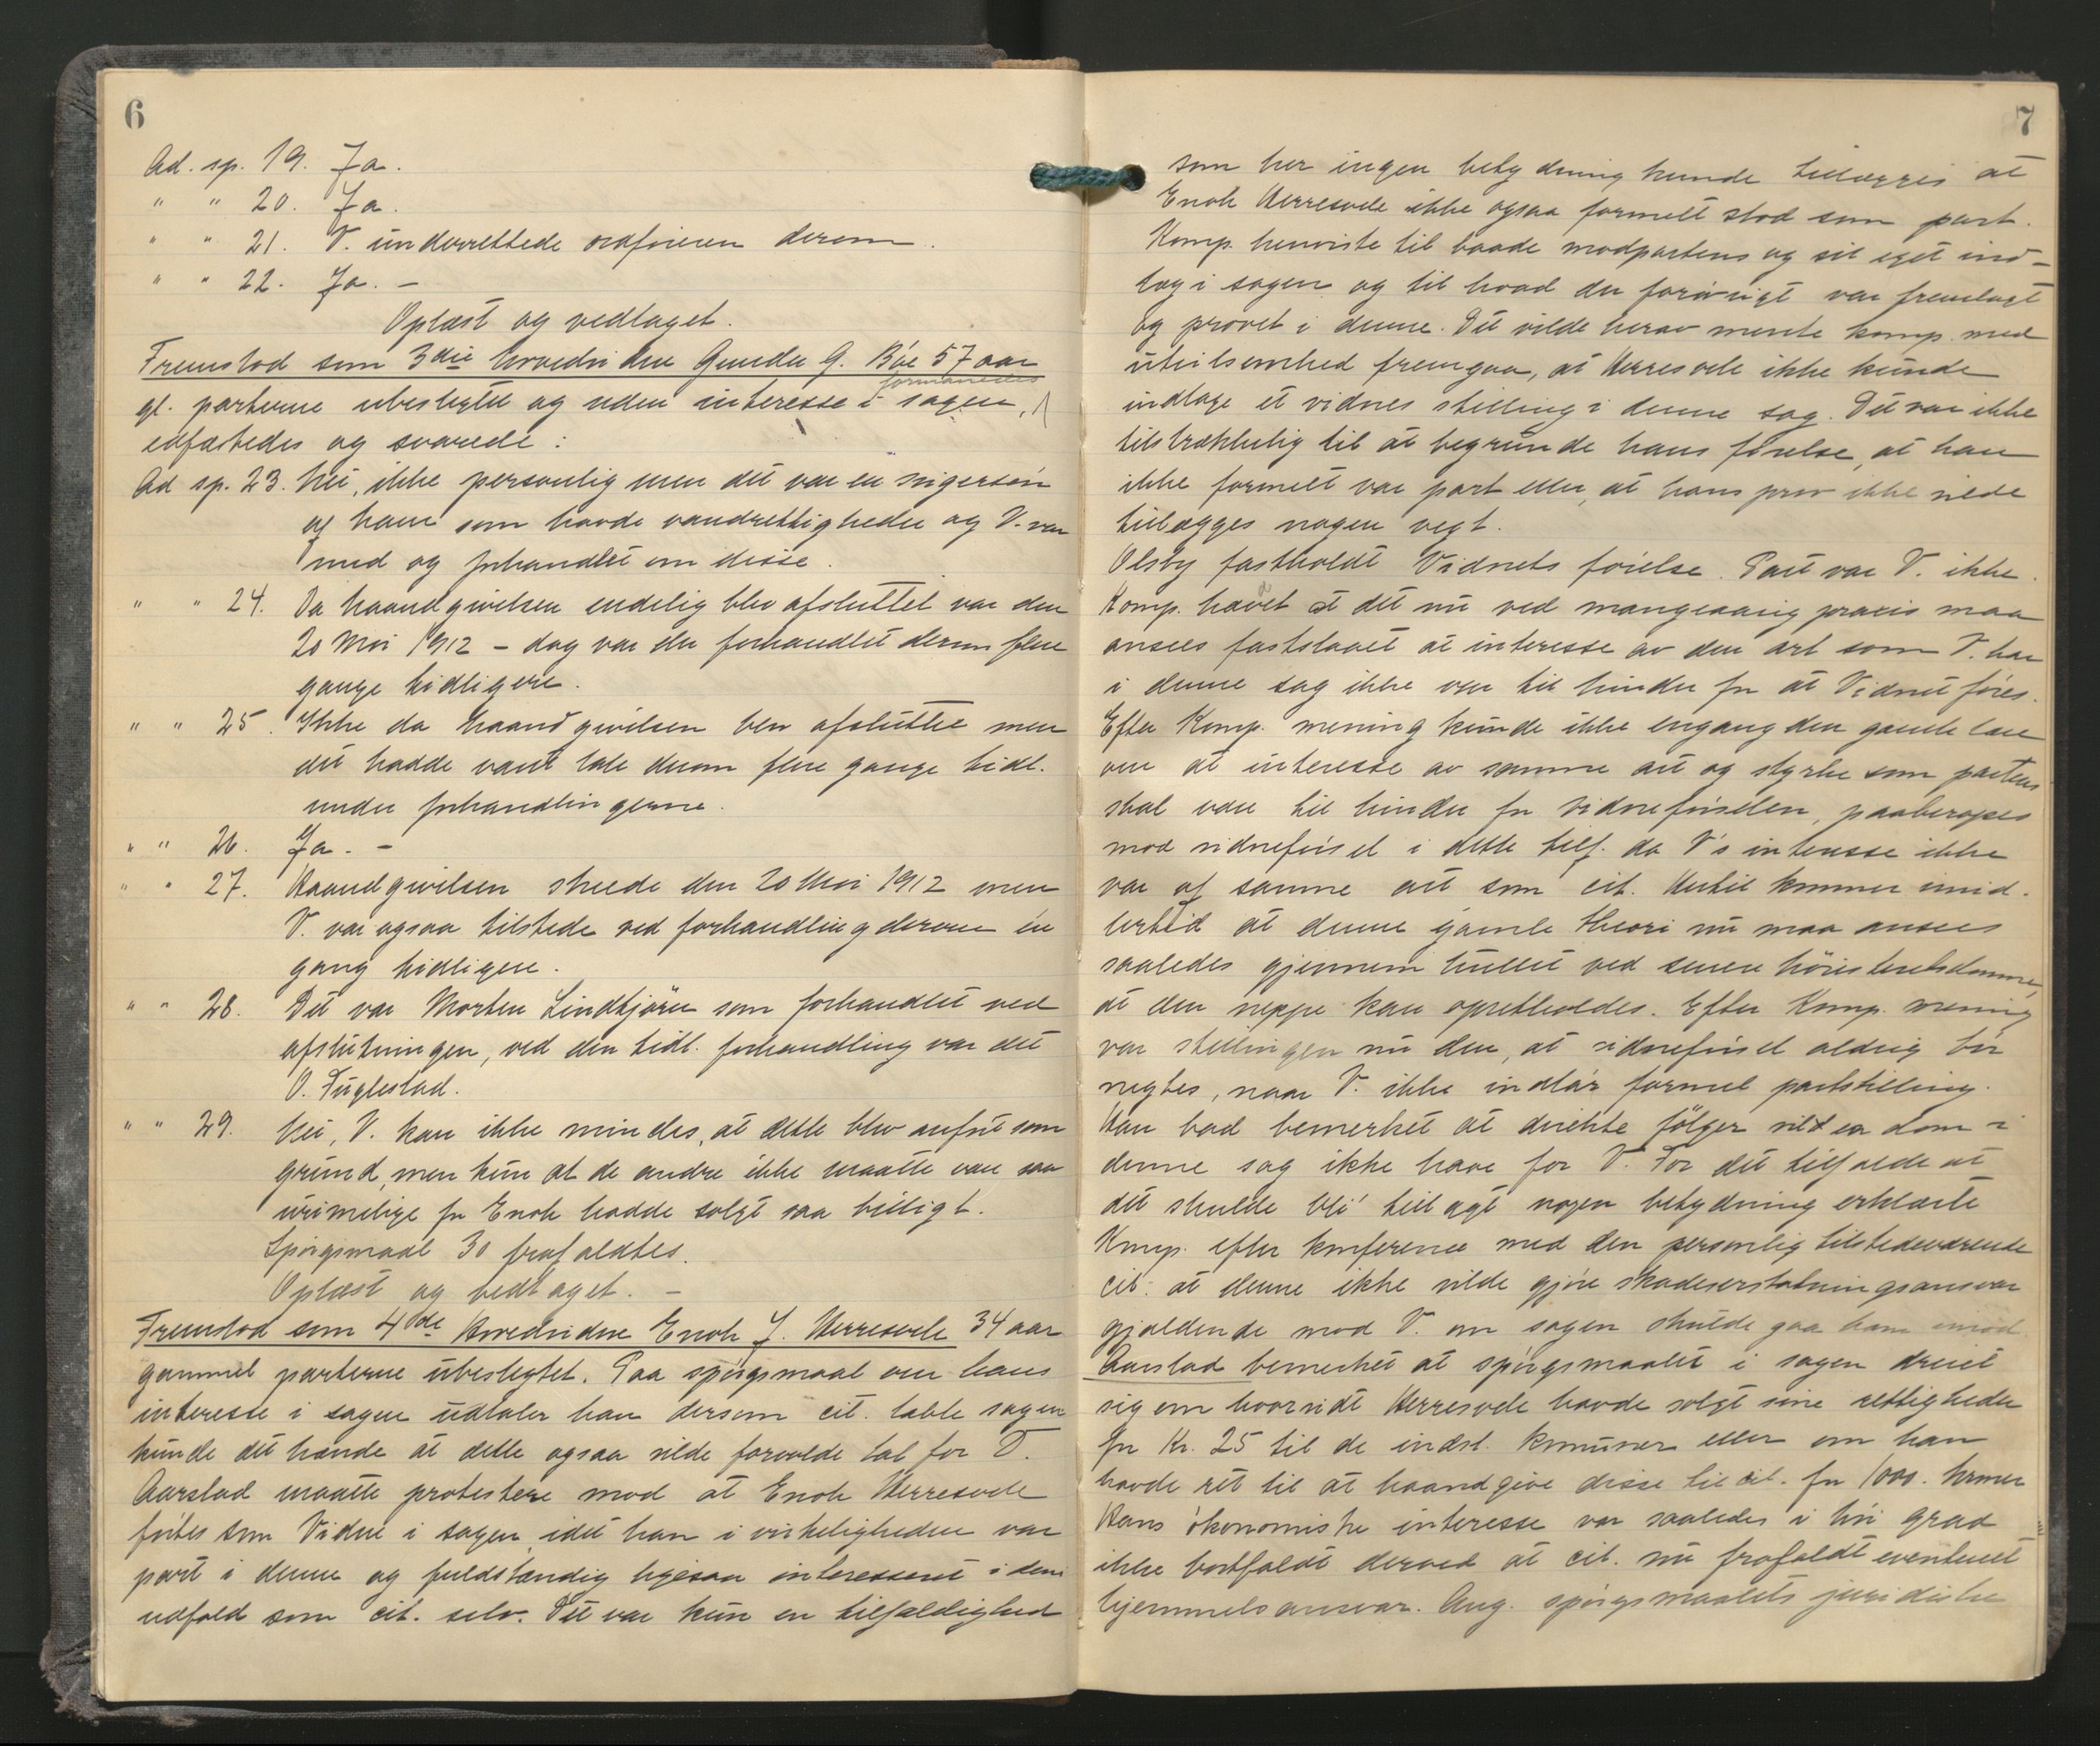 6
Ad. sp. 19. Ja.
" " 20. Ja.
" " 21. V. underrettede ordføreren derom.
" " 22. Ja. –
Oplæst og vedtaget.
Fremstod som 3die hovedvidne Gunder G. Bøe 57 aar
formanedes
gl. parterne ubeslegtet og uden interesse i sagen,
edfæstedes og svarede:
Ad sp. 23. Nei, ikke personlig men det var en svigersøn
af ham som havde vandrettigheder og V. var
med og forhandlet om disse.
" " 24. Da haandgivelsen endelig blev afsluttet var den
20 Mai 1912 – dog var der forhandlet derom flere
gange tidligere.
" " 25. Ikke da haandgivelsen blev afsluttet men
det hadde vært tale derom flere gange tidl.
under forhandlingerne.
" " 26. Ja. –
" " 27. Haandgivelsen skeede den 20 Mai 1912 men
V. var ogsaa tilstede ved forhandling derom én
gang tidligere.
" " 28. Det var Morten Lindtjørn som forhandlet ved
afslutningen, ved den tidl. forhandling var det
O. Fuglestad.
" " 29. Nei, V. kan ikke mindes, at dette blev anført som
grund, men kun at de andre ikke maatte være saa
urimelige for Enok hadde solgt saa billigt.
Spørgsmaal 30 frafaldtes.
Oplæst og vedtaget. –
Fremstod som 4de hovedvidne Enok J. Herresvele 34 aar
gammel parterne ubeslegtet. Paa spørgsmaal om hans
interesse i sagen udtaler han dersom cit. tabte sagen
kunde det hænde at dette ogsaa vilde forvolde tab for V.
Aarstad maatte protestere mod at Enok Herresvele
førtes som Vidne i sagen, idet han i virkeligheden var
part i denne og fuldstændig ligesaa interesseret i dens
udfald som cit. selv. Det var kun en tilfældighed
7
som her ingen betydning kunde tillægges at
Enok Herresvele ikke ogsaa formelt stod som part.
Komp. henviste til baade modpartens og sit eget ind-
læg i sagen og til hvad der forøvrigt var fremlagt
og prøvet i denne. Det vilde herav mente komp. med
utvilsomhed fremgaa, at Herresvele ikke kunde
indtage et vidnes stilling i denne sag. Det var ikke
tilstrækkelig til at begrunde hans førelse, at han
ikke formelt var part eller, at hans prov ikke vilde
tillægges nogen vegt.
Olsby fastholdt Vidnets førelse. Part var V. ikke.
Komp. hævet at det nu ved mangeaarig praxis maa
ansees fastslaaet at interesse av den art som V. har
i denne sag ikke var til hinder for at Vidnet føres.
Efter Komp. mening kunde ikke engang den gamle lære
om at interesse av samme art og styrke som partens
skal være til hinder for vidneførselen, paaberopes
mod vidneførsel i dette tilf. da V's interesse ikke
var af samme art som cit. Hertil kommer imid-
lertid at denne gamle theori nu maa ansees
saaledes gjennemhullet ved senere høiesteretsdomme,
at den neppe kan opretholdes. Efter Komp. mening
var stillingen nu den, at vidneførsel aldrig bør
negtes, naar V. ikke indtar formel partstilling.
Han bad bemerket at direkte følger vilde en dom i
denne sag ikke have for V. For det tilfælde at
det skulde bli tillagt nogen betydning erklærte
Komp. efter konference med den personlig tilstedeværende
cit. at denne ikke vilde gjøre skadeserstatningsansvar
gjældende mod V. om sagen skulde gaa ham imod.
Aarstad bemerket at spørgsmaalet i sagen dreiet
sig om hvorvidt Herresvele havde solgt sine rettigheder
for Kr. 25 til de indst. komuner eller om han
havde ret til at haandgive disse til cit. for 1000. kroner
Hans økonomiske interesse var saaledes i høi grad
ikke bortfaldt derved at cit. nu frafaldt eventuelt
hjemmelsansvar. Ang. spørgsmaalets juridiske